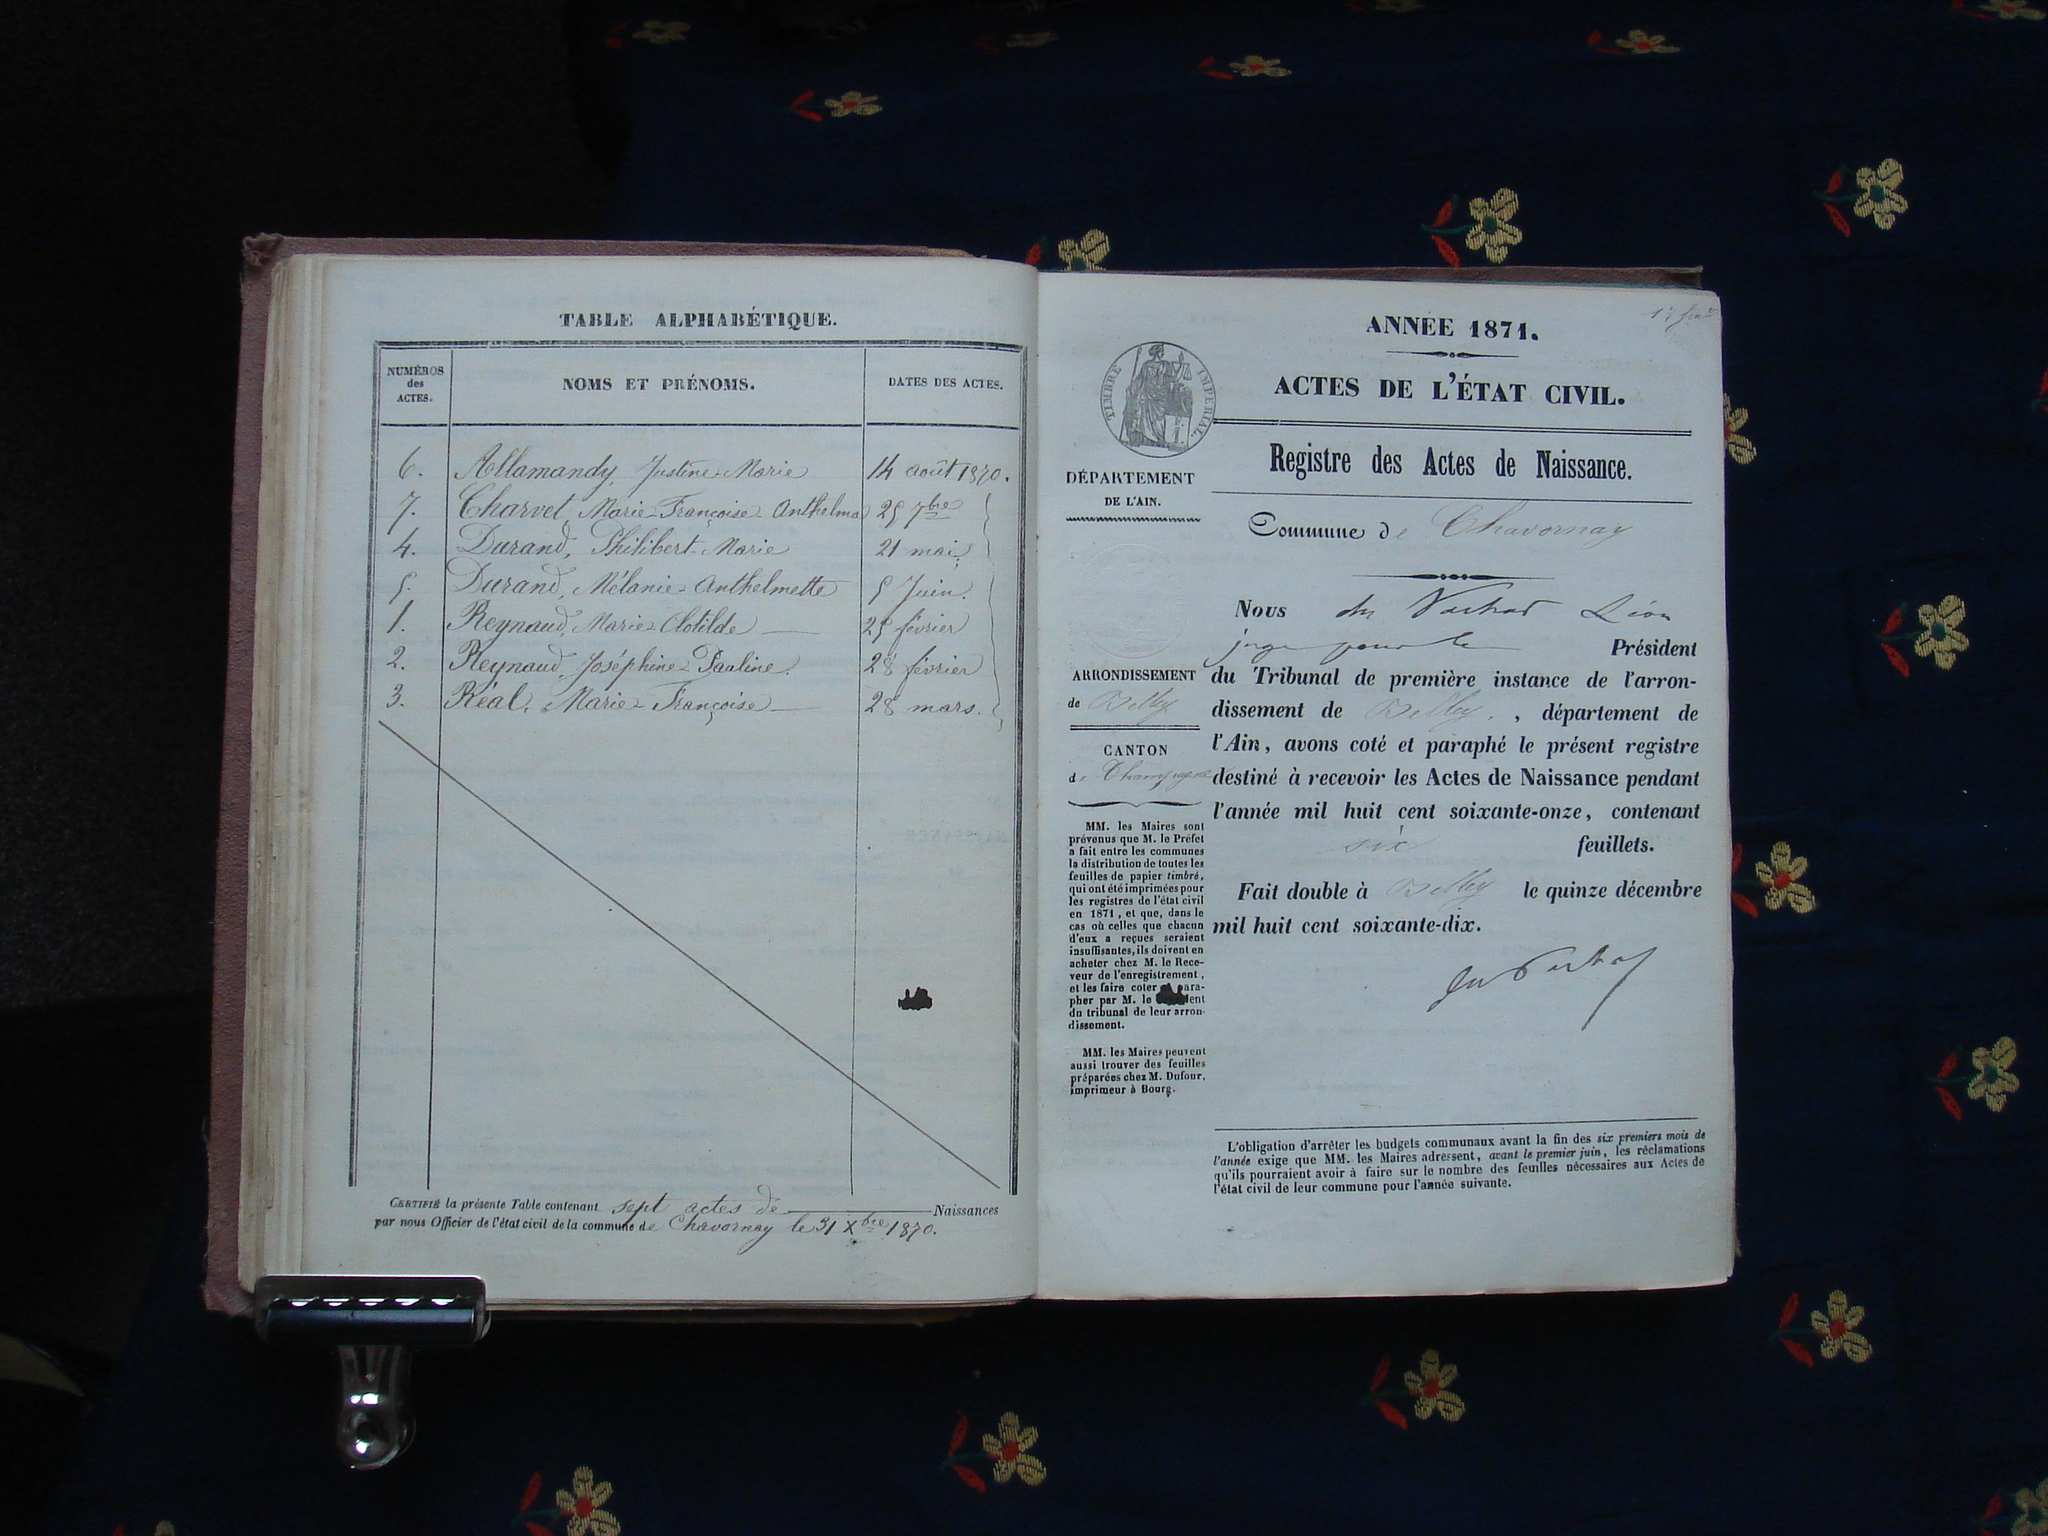 TABLE ALPHABÉTIQUE.
NUMÉROS
des
ACTES.
NOMS ET PRÉNOMS.
DATES DES ACTES.
6. Allamandy, Justine-Marie 14 août 1870.
7. Charvet, Marie-Françoise-Anthelma 25 7bre
4. Durand, Philibert-Marie 21 mai
5. Durand, Mélanie-Anthelmette 5 Juin.
1. Reynaud, Marie-Clotilde 25 février
2. Reynaud, Joséphine-Pauline. 28 février
3. Réal, Marie-Françoise 28 mars.
CERTIFIÉ la présente Table contenant sept actes de Naissances
par nous Officier de l'état civil de la commune de Chavornay le 31 Xbre 1870.
ANNÉE 1871.
TIMBRE IMPÉRIAL.
ACTES DE L'ÉTAT CIVIL.
Registre des Actes de Naissance.
DÉPARTEMENT
DE L'AIN.
Commune de Chavornay
ARRONDISSEMENT
de Belley
CANTON
de Champagne
MM. les Maires sont
prévenus que M. le Préfet
a fait entre les communes
la distribution de toutes les
feuilles de papier timbré,
qui ont été imprimées pour
les registres de l'état civil
en 1871, et que, dans le
cas où celles que chacun
d'eux a reçues seraient
insuffisantes, ils doivent en
acheter chez M. le Rece-
veur de l'enregistrement,
et les faire coter para-
pher par M. le ent
du tribunal de leur arron-
dissement.
MM. les Maires peuvent
aussi trouver des feuilles
préparées chez M. Dufour,
imprimeur à Bourg.
Nous Léon
juge Président
du Tribunal de première instance de l'arron-
dissement de Belley, département de
l'Ain, avons coté et paraphé le présent registre
destiné à recevoir les Actes de Naissance pendant
l'année mil huit cent soixante-onze, contenant
six feuillets.
Fait double à Belley le quinze décembre
mil huit cent soixante-dix.
L'obligation d'arrêter les budgets communaux avant la fin des six premiers mois de
l'année exige que MM. les Maires adressent, avant le premier juin, les réclamations
qu'ils pourraient avoir à faire sur le nombre des feuilles nécessaires aux Actes de
l'état civil de leur commune pour l'année suivante.